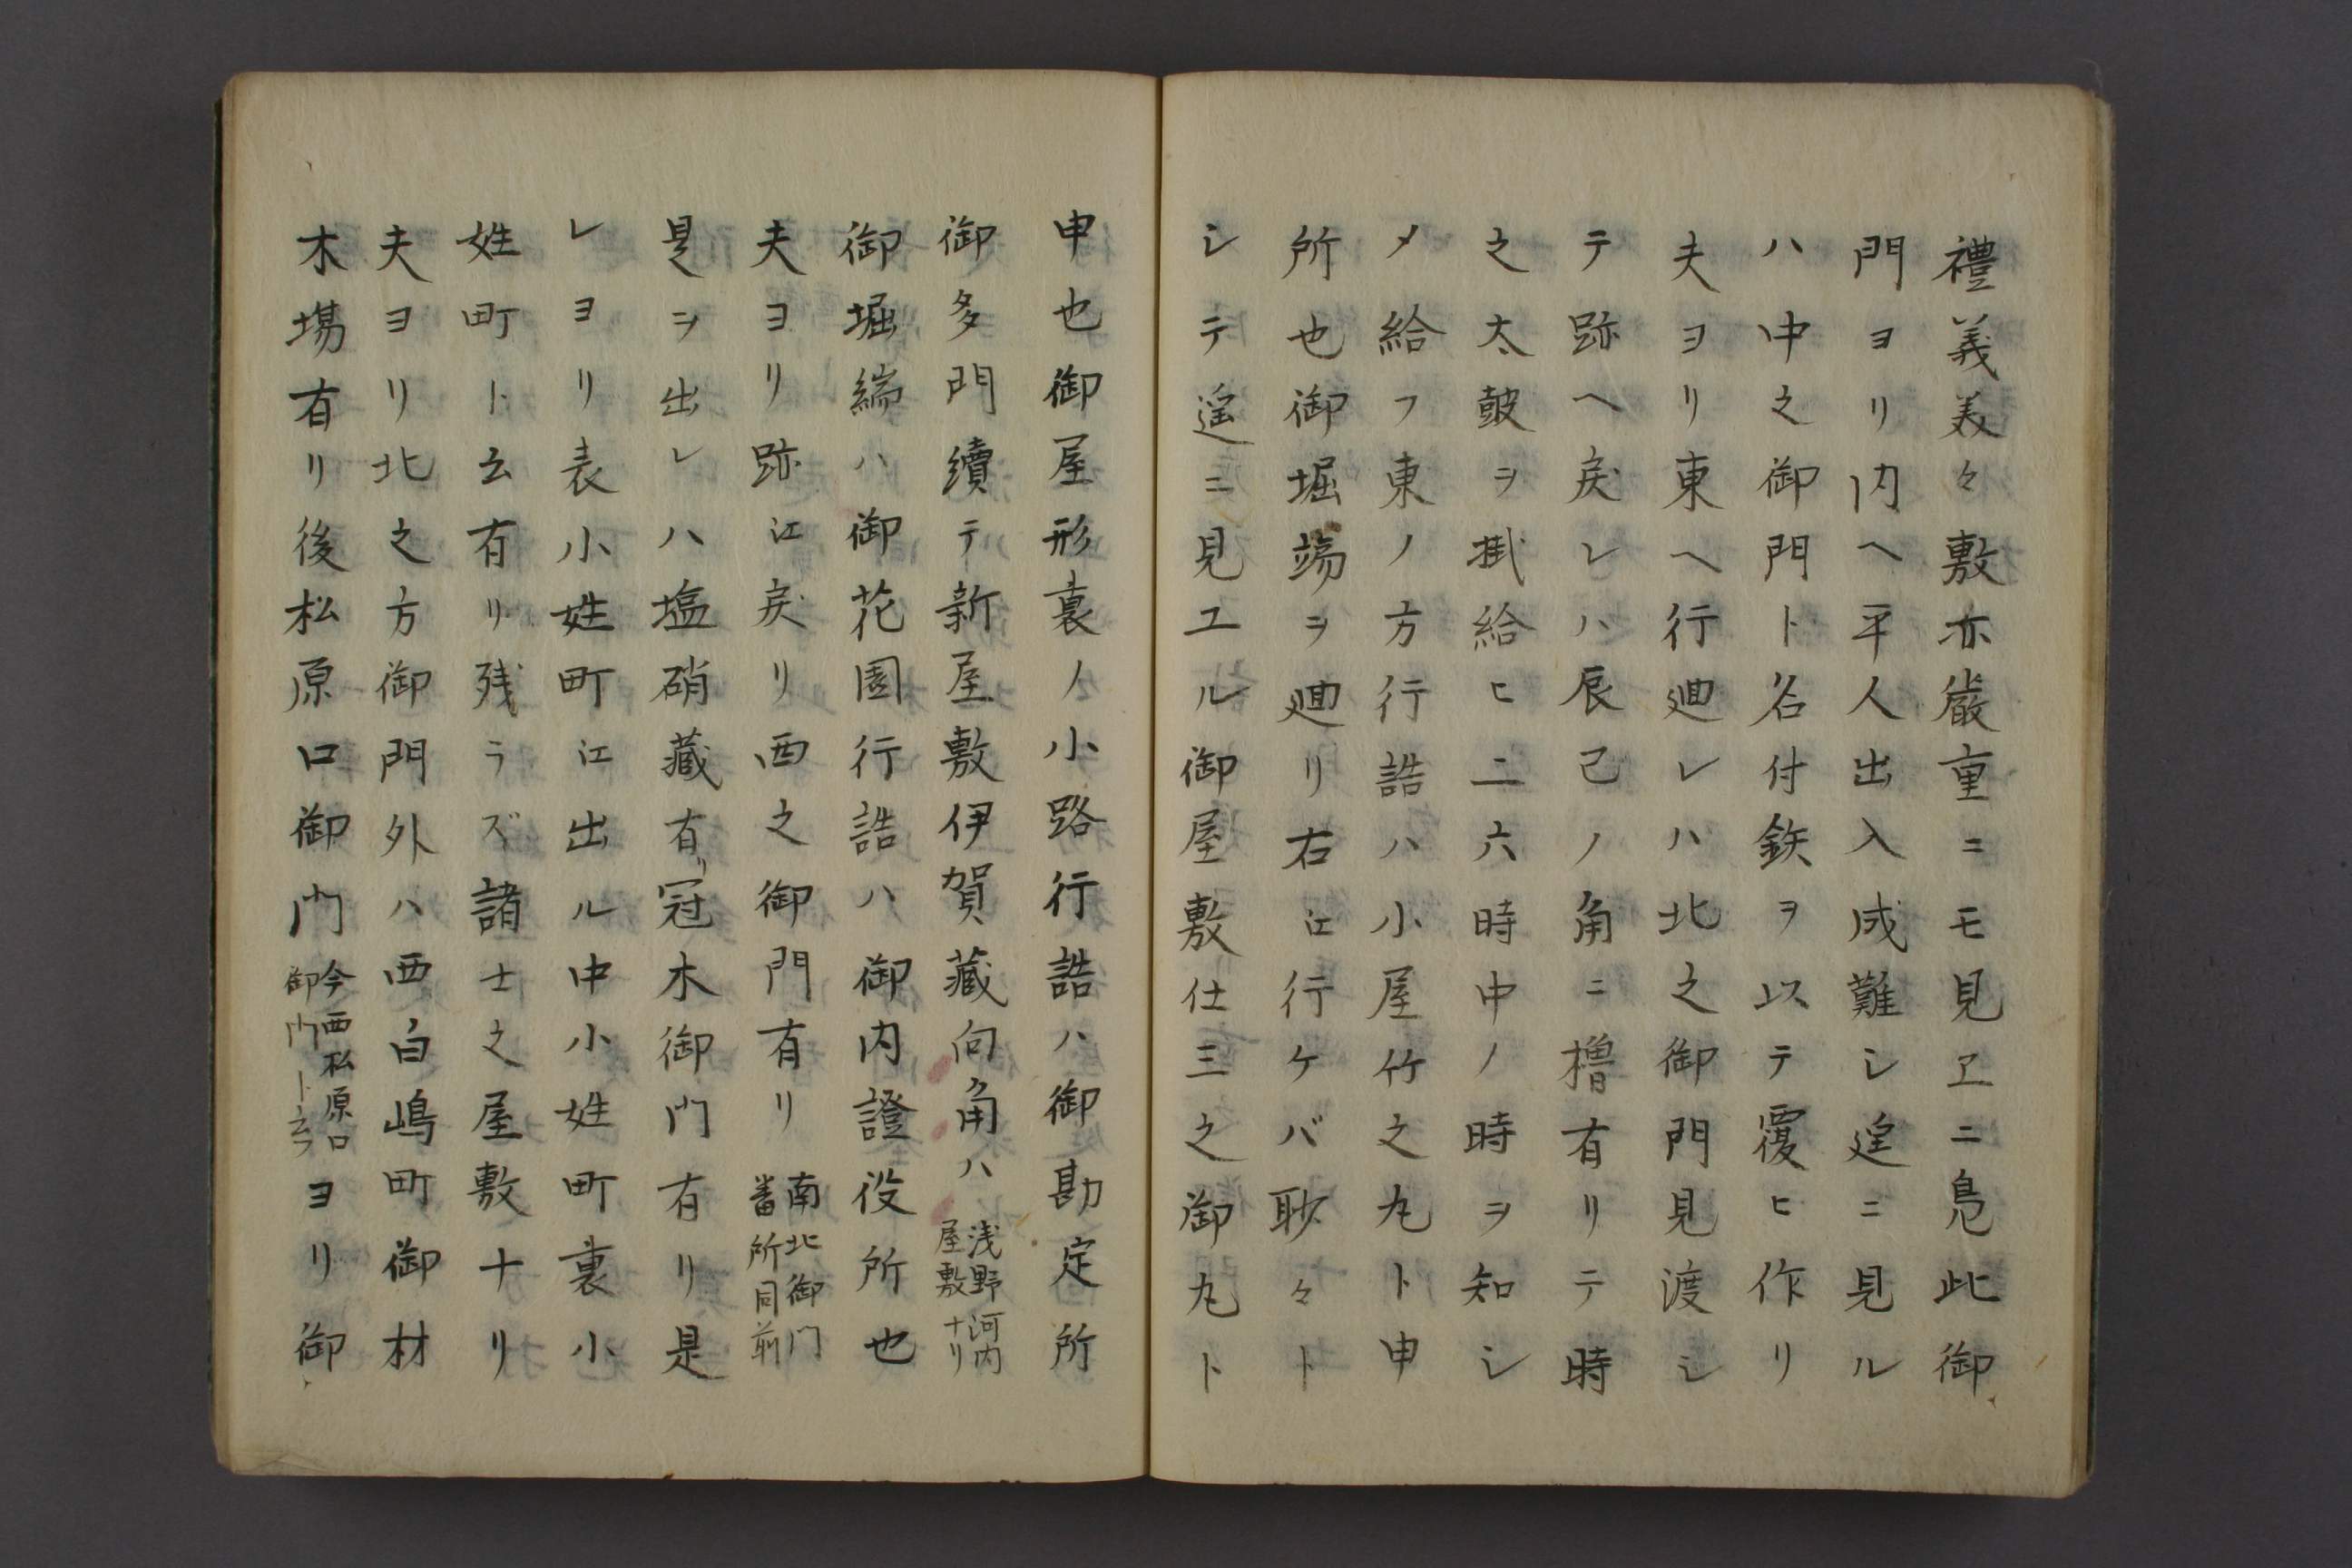 禮義美々敷亦嚴重ニモ見ヱニ鳧此御
門ヨリ内ヘ平人出入成難シ遙ニ見ル
ハ中之御門ト名付鉄ヲ以テ覆ヒ作リ
夫ヨリ東ヘ行廻レハ北之御門見渡シ
テ跡ヘ戻レハ辰己ノ角ニ櫓有リテ時
之太鼓ヲ掛給ヒ二六時中ノ時ヲ知シ
メ給フ東ノ方行詰ハ小屋竹之丸ト申
所也御堀端ヲ廻リ右江行ケバ眇々ト
シテ遙ニ見ユル御屋敷仕三之御丸ト
申也御屋形裏ノ小路行詰ハ御勘定所
御多門續テ新屋敷伊賀藏向角ハ浅野河内屋敷ナリ
御堀端ハ御花園行詰ハ御内證役所也
夫ヨリ跡江戻リ西之御門有リ南北御門番所同前
是ヲ出レハ塩硝藏有リ冠木御門有リ是
レヨリ表小姓町江出ル中小姓町裏小
姓町ト云有リ残ラズ諸士之屋敷ナリ
夫ヨリ北之方御門外ハ西白嶋町御材
木場有リ後松原口御門今西松原口御門ト云フヨリ御